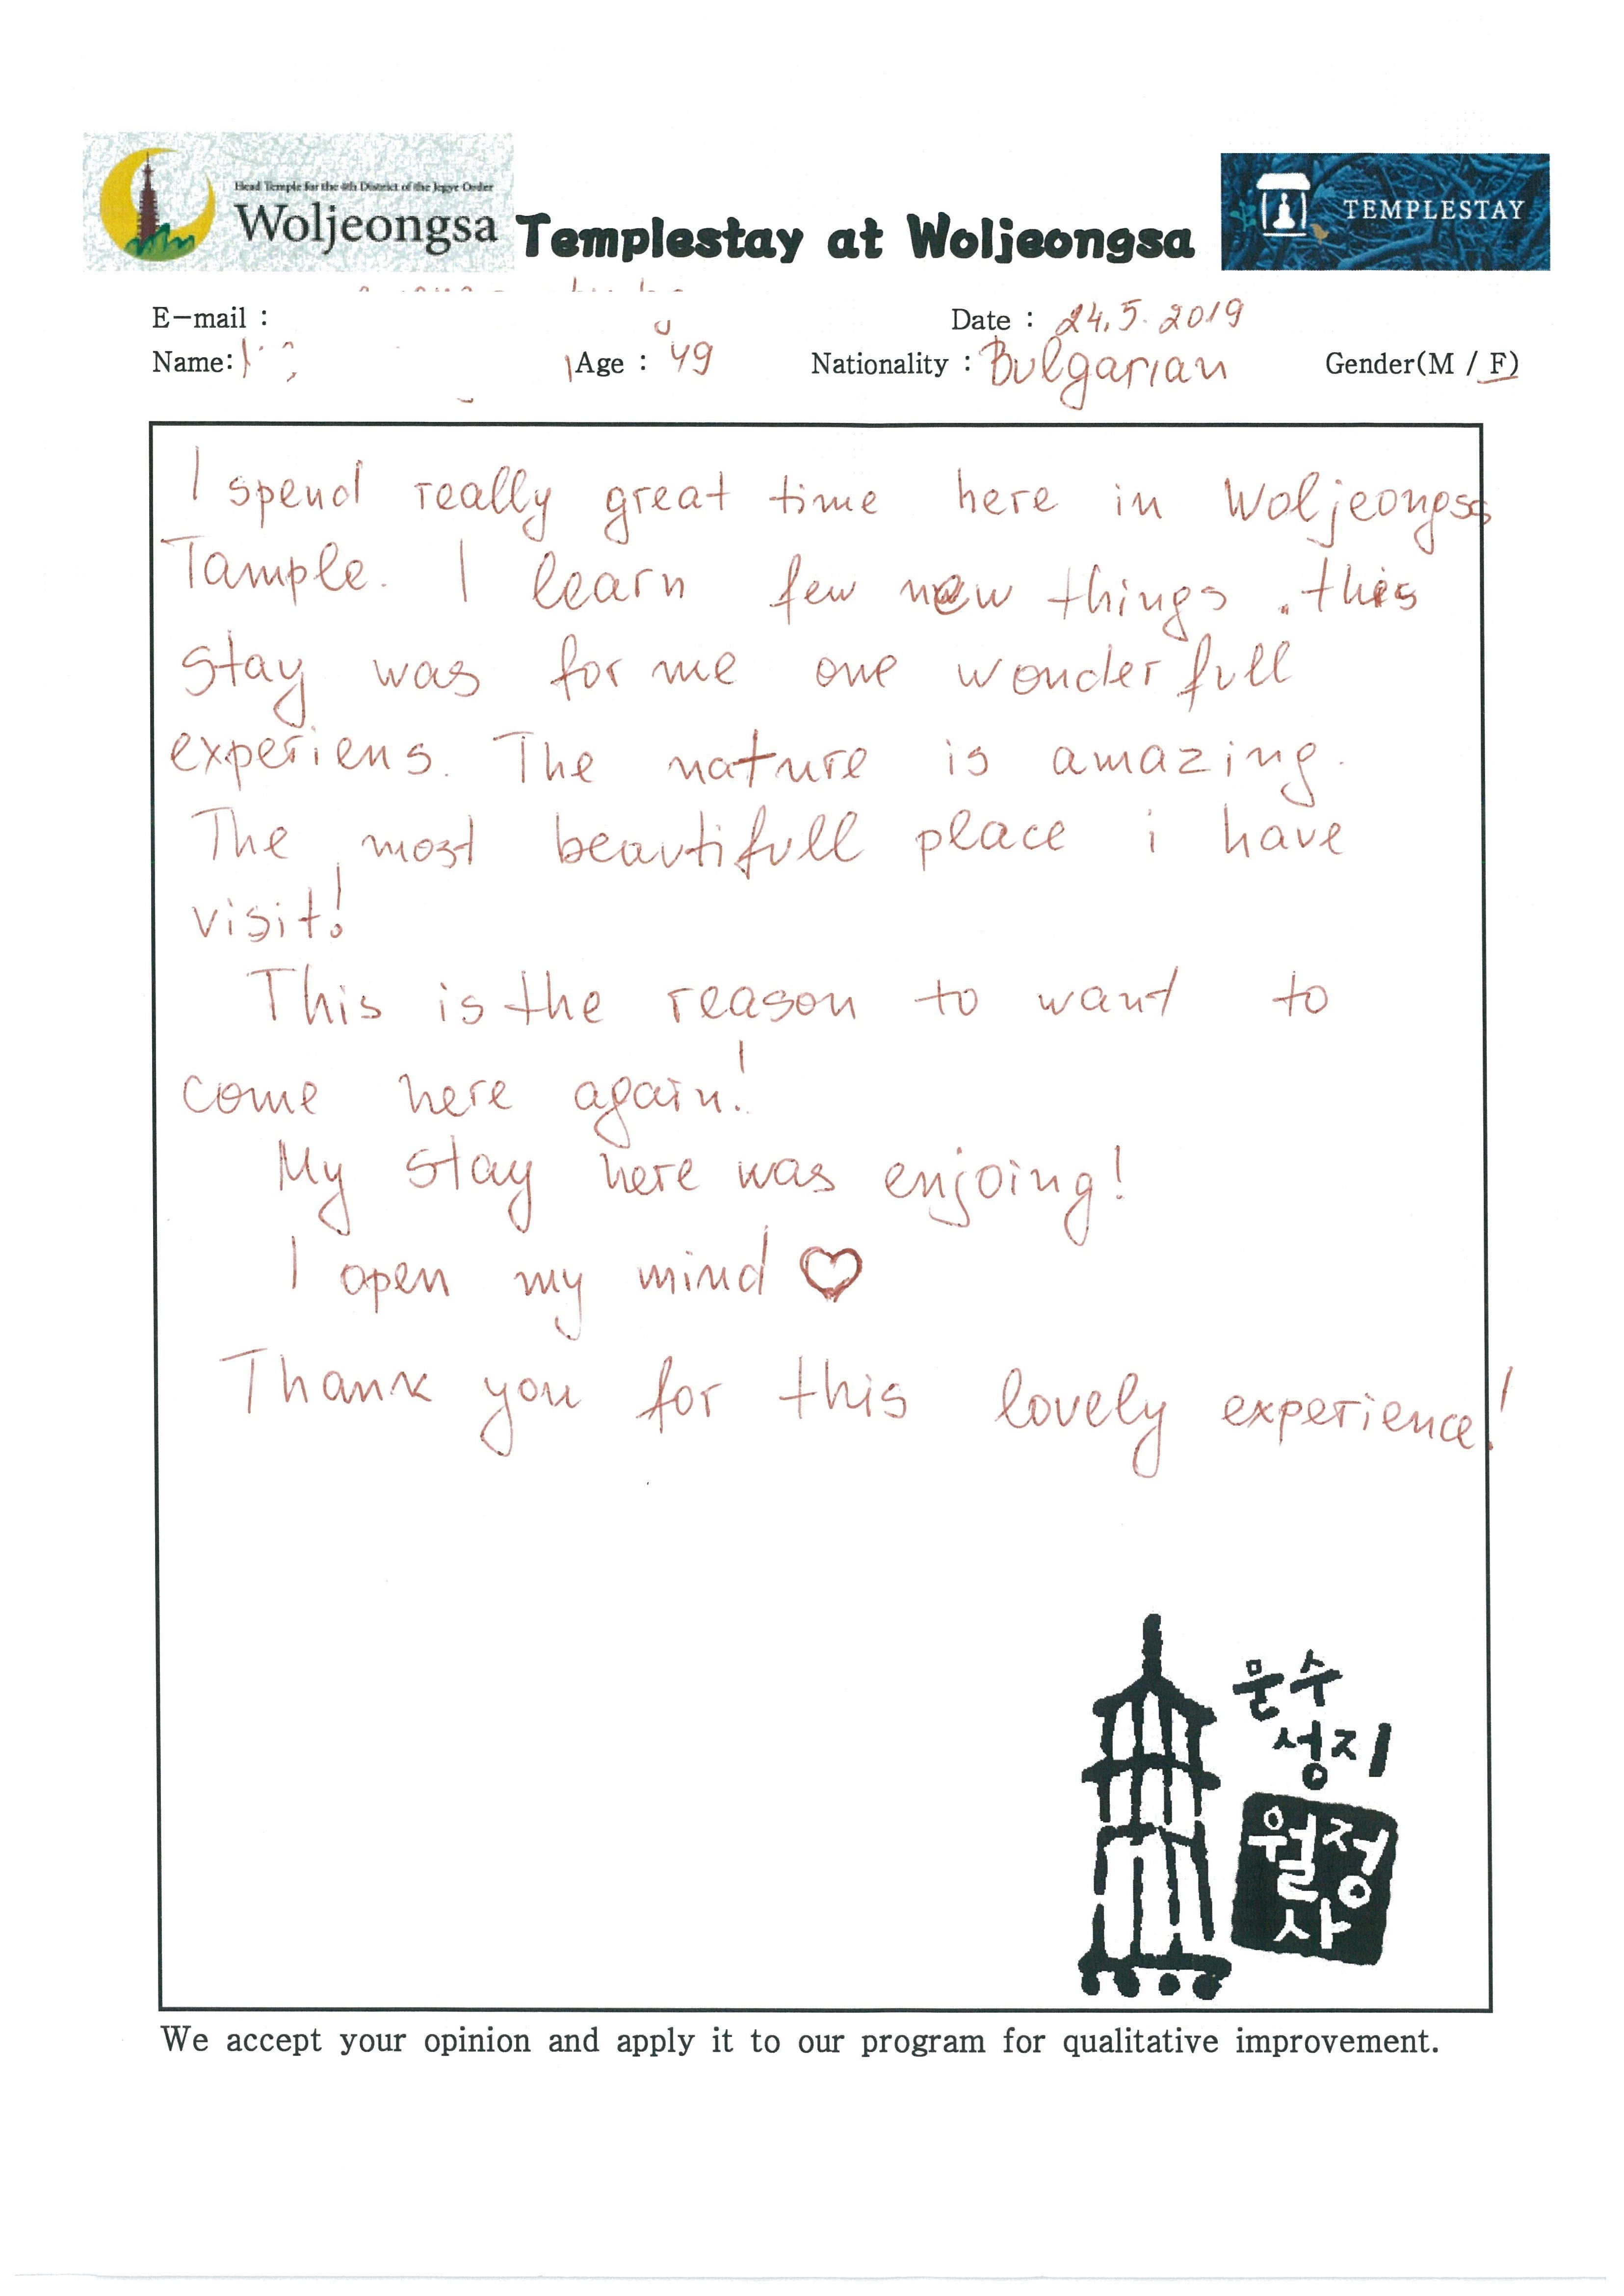 Head Temple for the 4th District of the Jogye Order
Woljeongsa
Templestay at Woljeongsa
TEMPLESTAY
E-mail :
Date : 24.5.2019
Name:
Age : 49
Nationality : Bulgarian
Gender(M / F)
I spend really great time here in Woljeongsa
Tample. I learn few new things. this
stay was for me one wonderfull
experiens. The nature is amazing.
The most beautifull place i have
visit!
This is the reason to want to
come here again!
My stay here was enjoing!
I open my mind ♡
Thank you for this lovely experience!
문수
성지
월정
사
We accept your opinion and apply it to our program for qualitative improvement.